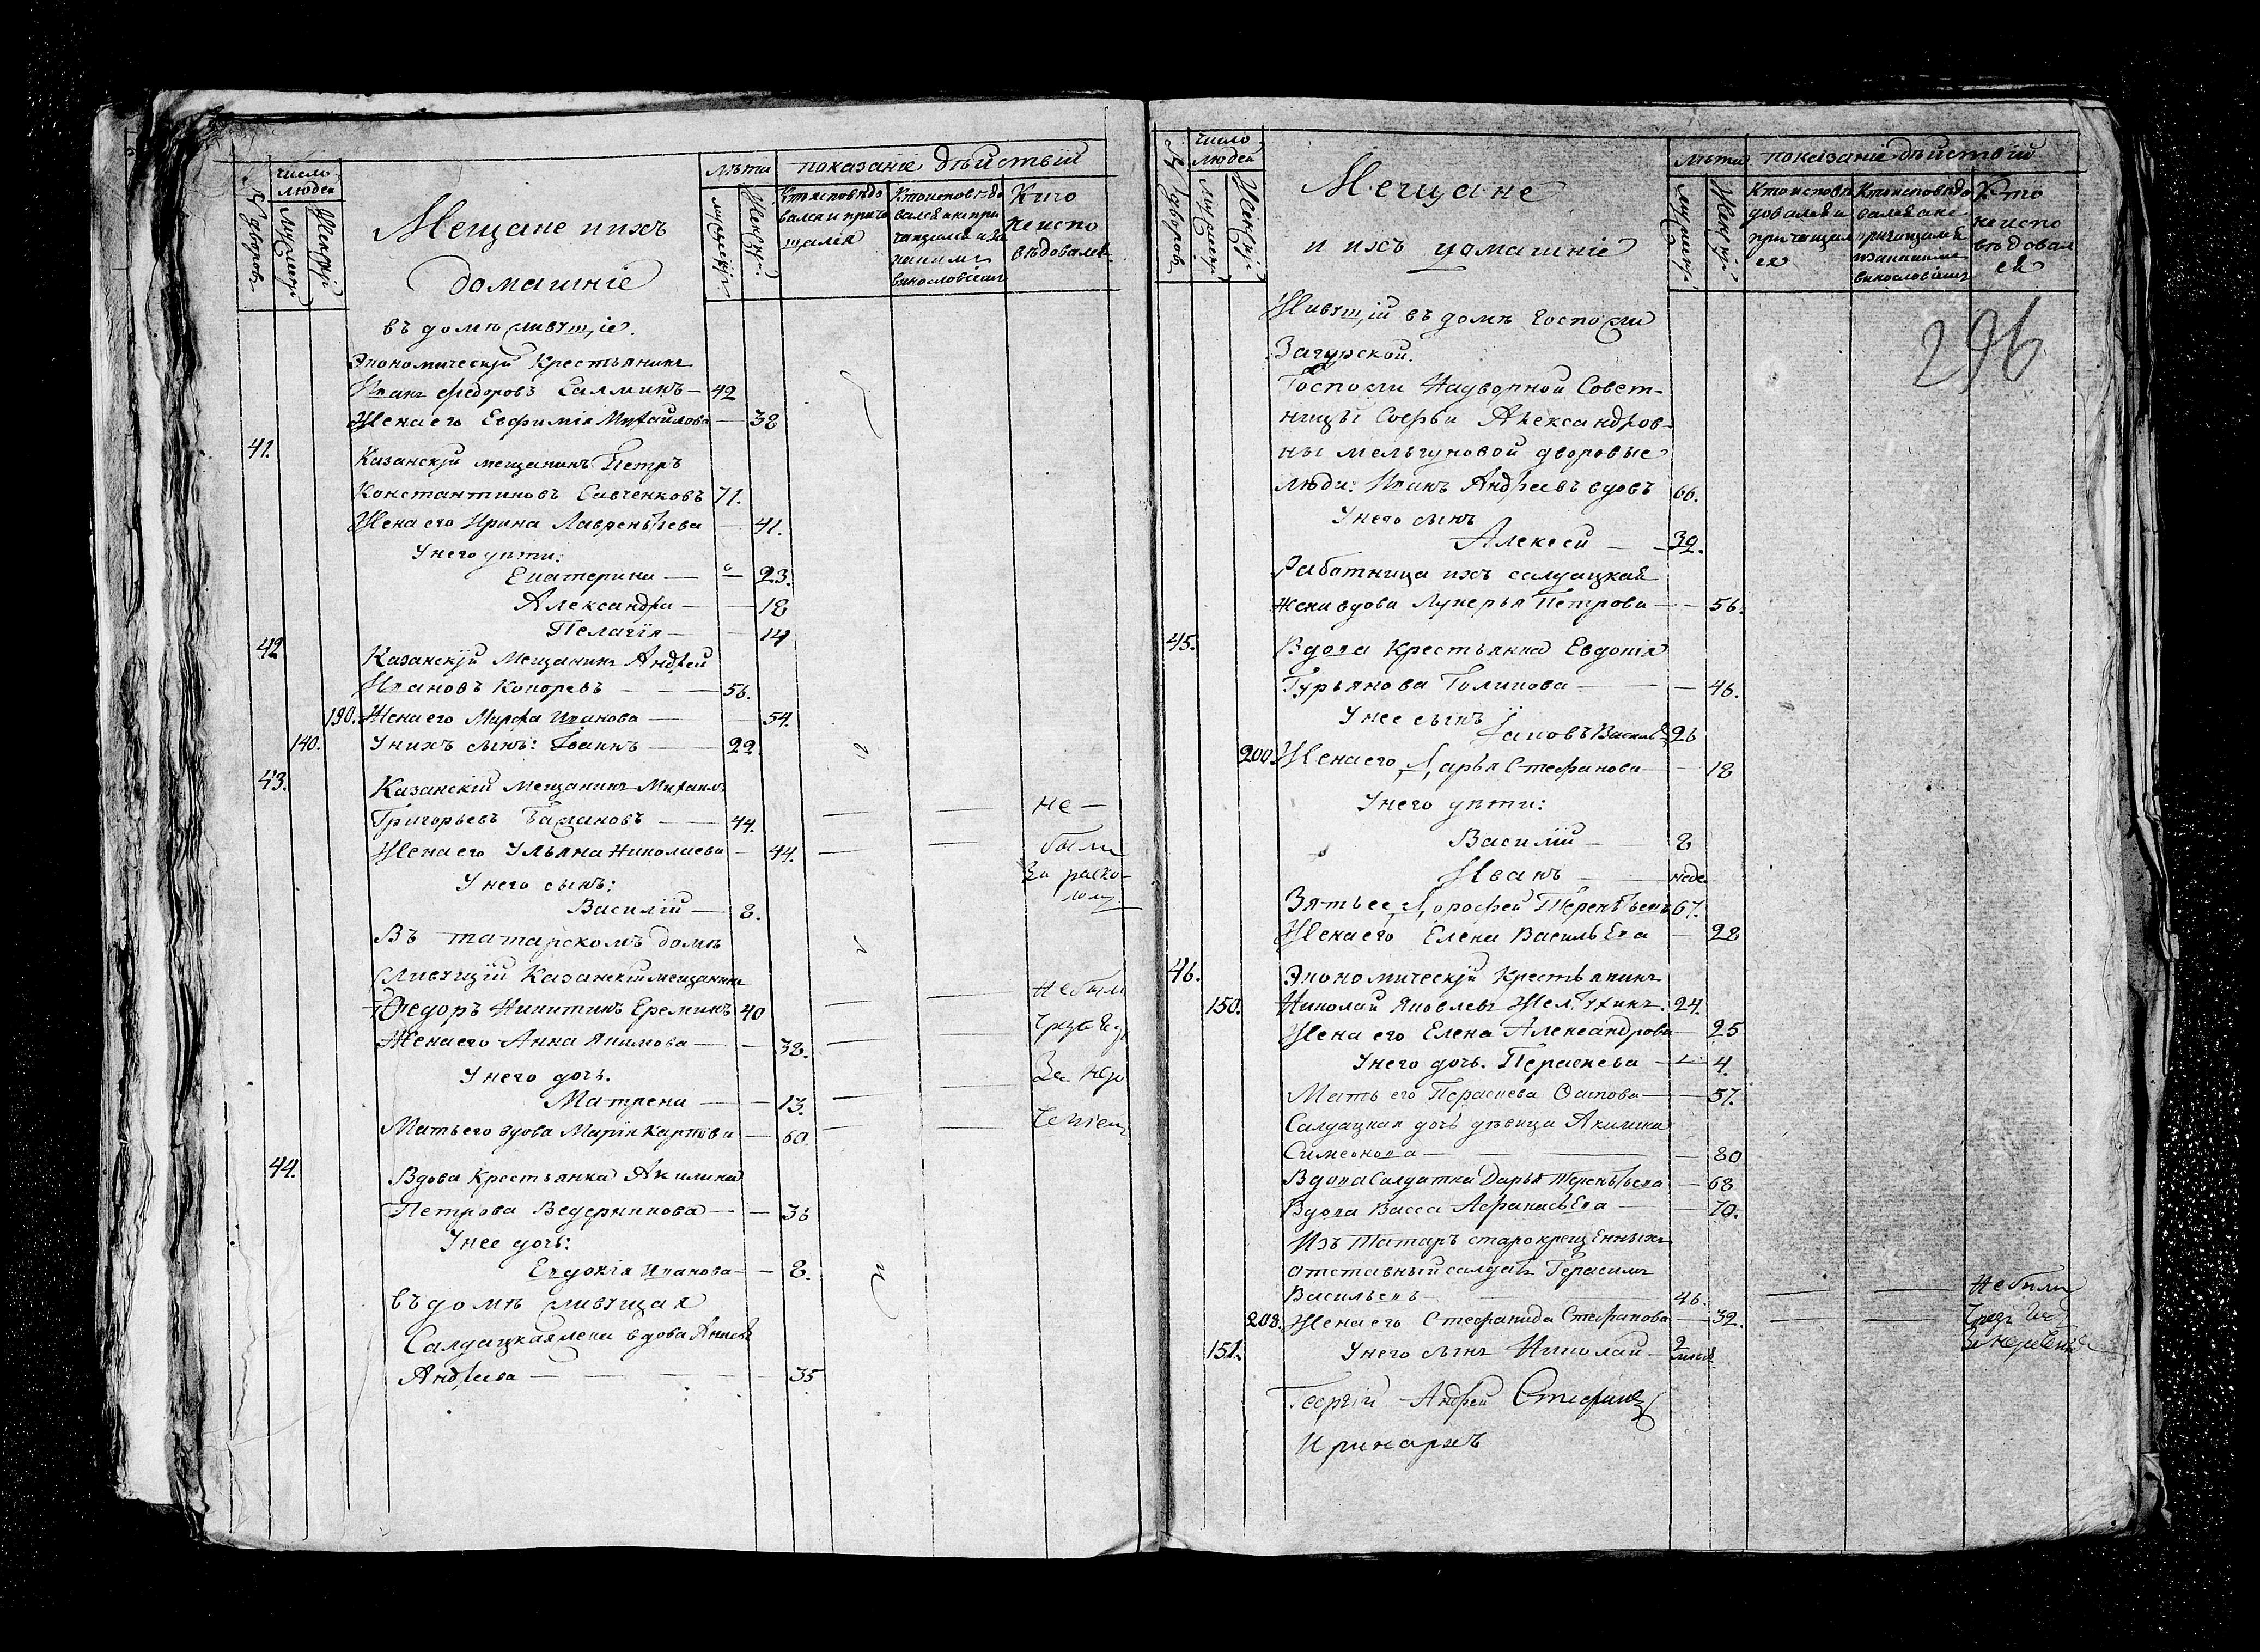 № дворовъ
число людей
Мужескій
Женскій
Мещане и ихъ
домашніе
лѣта
мужескій
Женскій
показаніе дѣйствій
Кто исповѣдо
вался и прича
щался
Кто исповѣдо
вался а не при
чащался и за
какимъ
винословіемъ
Кто
не испо
вѣдовалъ
въ домѣ живущіе.
Экономическій Крестьянинъ
Иванъ Федоровъ Салминъ — 42
Жена его Евфимія Михайлова — 38
41.
Казанскій мещанинъ Петръ
Константиновъ Савченковъ 71.
Жена его Ирина Лаврентьева — 41.
У него дѣти:
Екатерина — 23.
Александра — 18
Пелагія — 14
42
Казанскій Мещанинъ Андрей
Ивановъ Копоревъ — 56.
190. Жена его Марфа Иванова — 54.
140. У нихъ сынъ: Іоаннъ — 22.
43.
Казанскій Мещанинъ Михаилъ
Григорьевъ — 44. — — не —
Жена его Ульяна Николаева — 44. — — были
У него сынъ: за раско-
Василій — 8. лому
Въ татарскомъ домѣ
живущій Казанскій мещанинъ
Федоръ Никитинъ Ереминъ 40 — — не были
Жена его Анна Якимова — 38. —
У него дочь. За не
Матрена — 13. —
Мать его вдова Марія Карпова — 60. — —
44.
Вдова Крестьянка Акилина
Петрова Ведерникова — 36
У нее дочь:
Евдокія Иванова — 8.
въ домѣ живущая
Салдацкая жена вдова
Андреева — 35
№ дворовъ
число людей
Мужескій
Женскій
Мещане
и ихъ домашніе
лѣта
мужескій
Женскій
показаніе дѣйствій
Кто исповѣ
довался и
причащал
ся
Кто исповѣдо
вался а не
причащался
и за какимъ
винословіемъ
Кто
не испо
вѣдовал
ся
296
Живущій въ домѣ Госпожи
Загурской.
Госпожи Надворной Совет-
ницы Софьи Александров-
ны Мельгуновой дворовые
люди: Иванъ Андреевъ вдовъ 66.
У него сынъ
Алексей — 39.
Работница ихъ салдацкая
жена вдова Лукерья Петрова — 56.
45.
Вдова крестьянка Евдокія
Гурьянова Голикова — 46.
У нее сынъ
Іаковъ Васильевъ 26
200. Жена его Дарья Стефанова — 18
У него дѣти:
Василій — 8
Иванъ — неде.
Зять ее Дорофей Терентьевъ 67.
Жена его Елена Васильева — 28
46.
Экономическій Крестьянинъ
150. Николай Яковлевъ 24.
Жена его Елена Александрова — 25
У него дочь. Параскева — 4.
Мать его Параскева — 57.
Салдацкая дочь девица Акилина
Симеонова — 80
Вдова Салдатка Дарья Терентьева — 68
Вдова Васса Афанасьева — 70.
Изъ Татаръ старокрещенныхъ
отставный салдатъ Герасимъ
Васильевъ — 46. — — не были
208. Жена его Стефанида Стефанова — 32. — —
151. У него сынъ Николай — 2
Георгій Андрей Стефанъ
Иринархъ